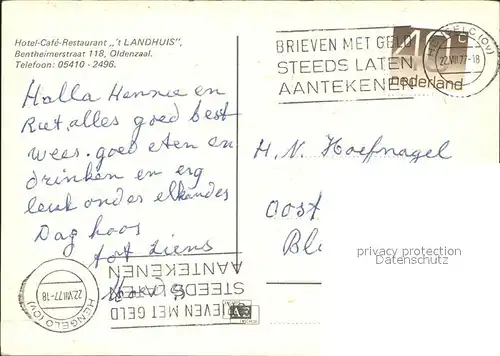 Hotel-Café-Restaurant „'t LANDHUIS”,
Bentheimerstraat 118, Oldenzaal.
Telefoon: 05410 - 2496.
Holla Hennie en
Riet, alles goed best
wees. goed eten en
drinken en erg
leuk onder elkander
Dag hoos
tot ziens
BRIEVEN MET GELD
STEEDS LATEN
AANTEKENEN
40c
nederland
HENGELO (OV)
22.VIII.77-18
H. N. Hoefnagel
Oost
Bl
privacy protection
Datenschutz
BRIEVEN MET GELD
STEEDS LATEN
AANTEKENEN
HENGELO (OV)
22.VIII.77-18